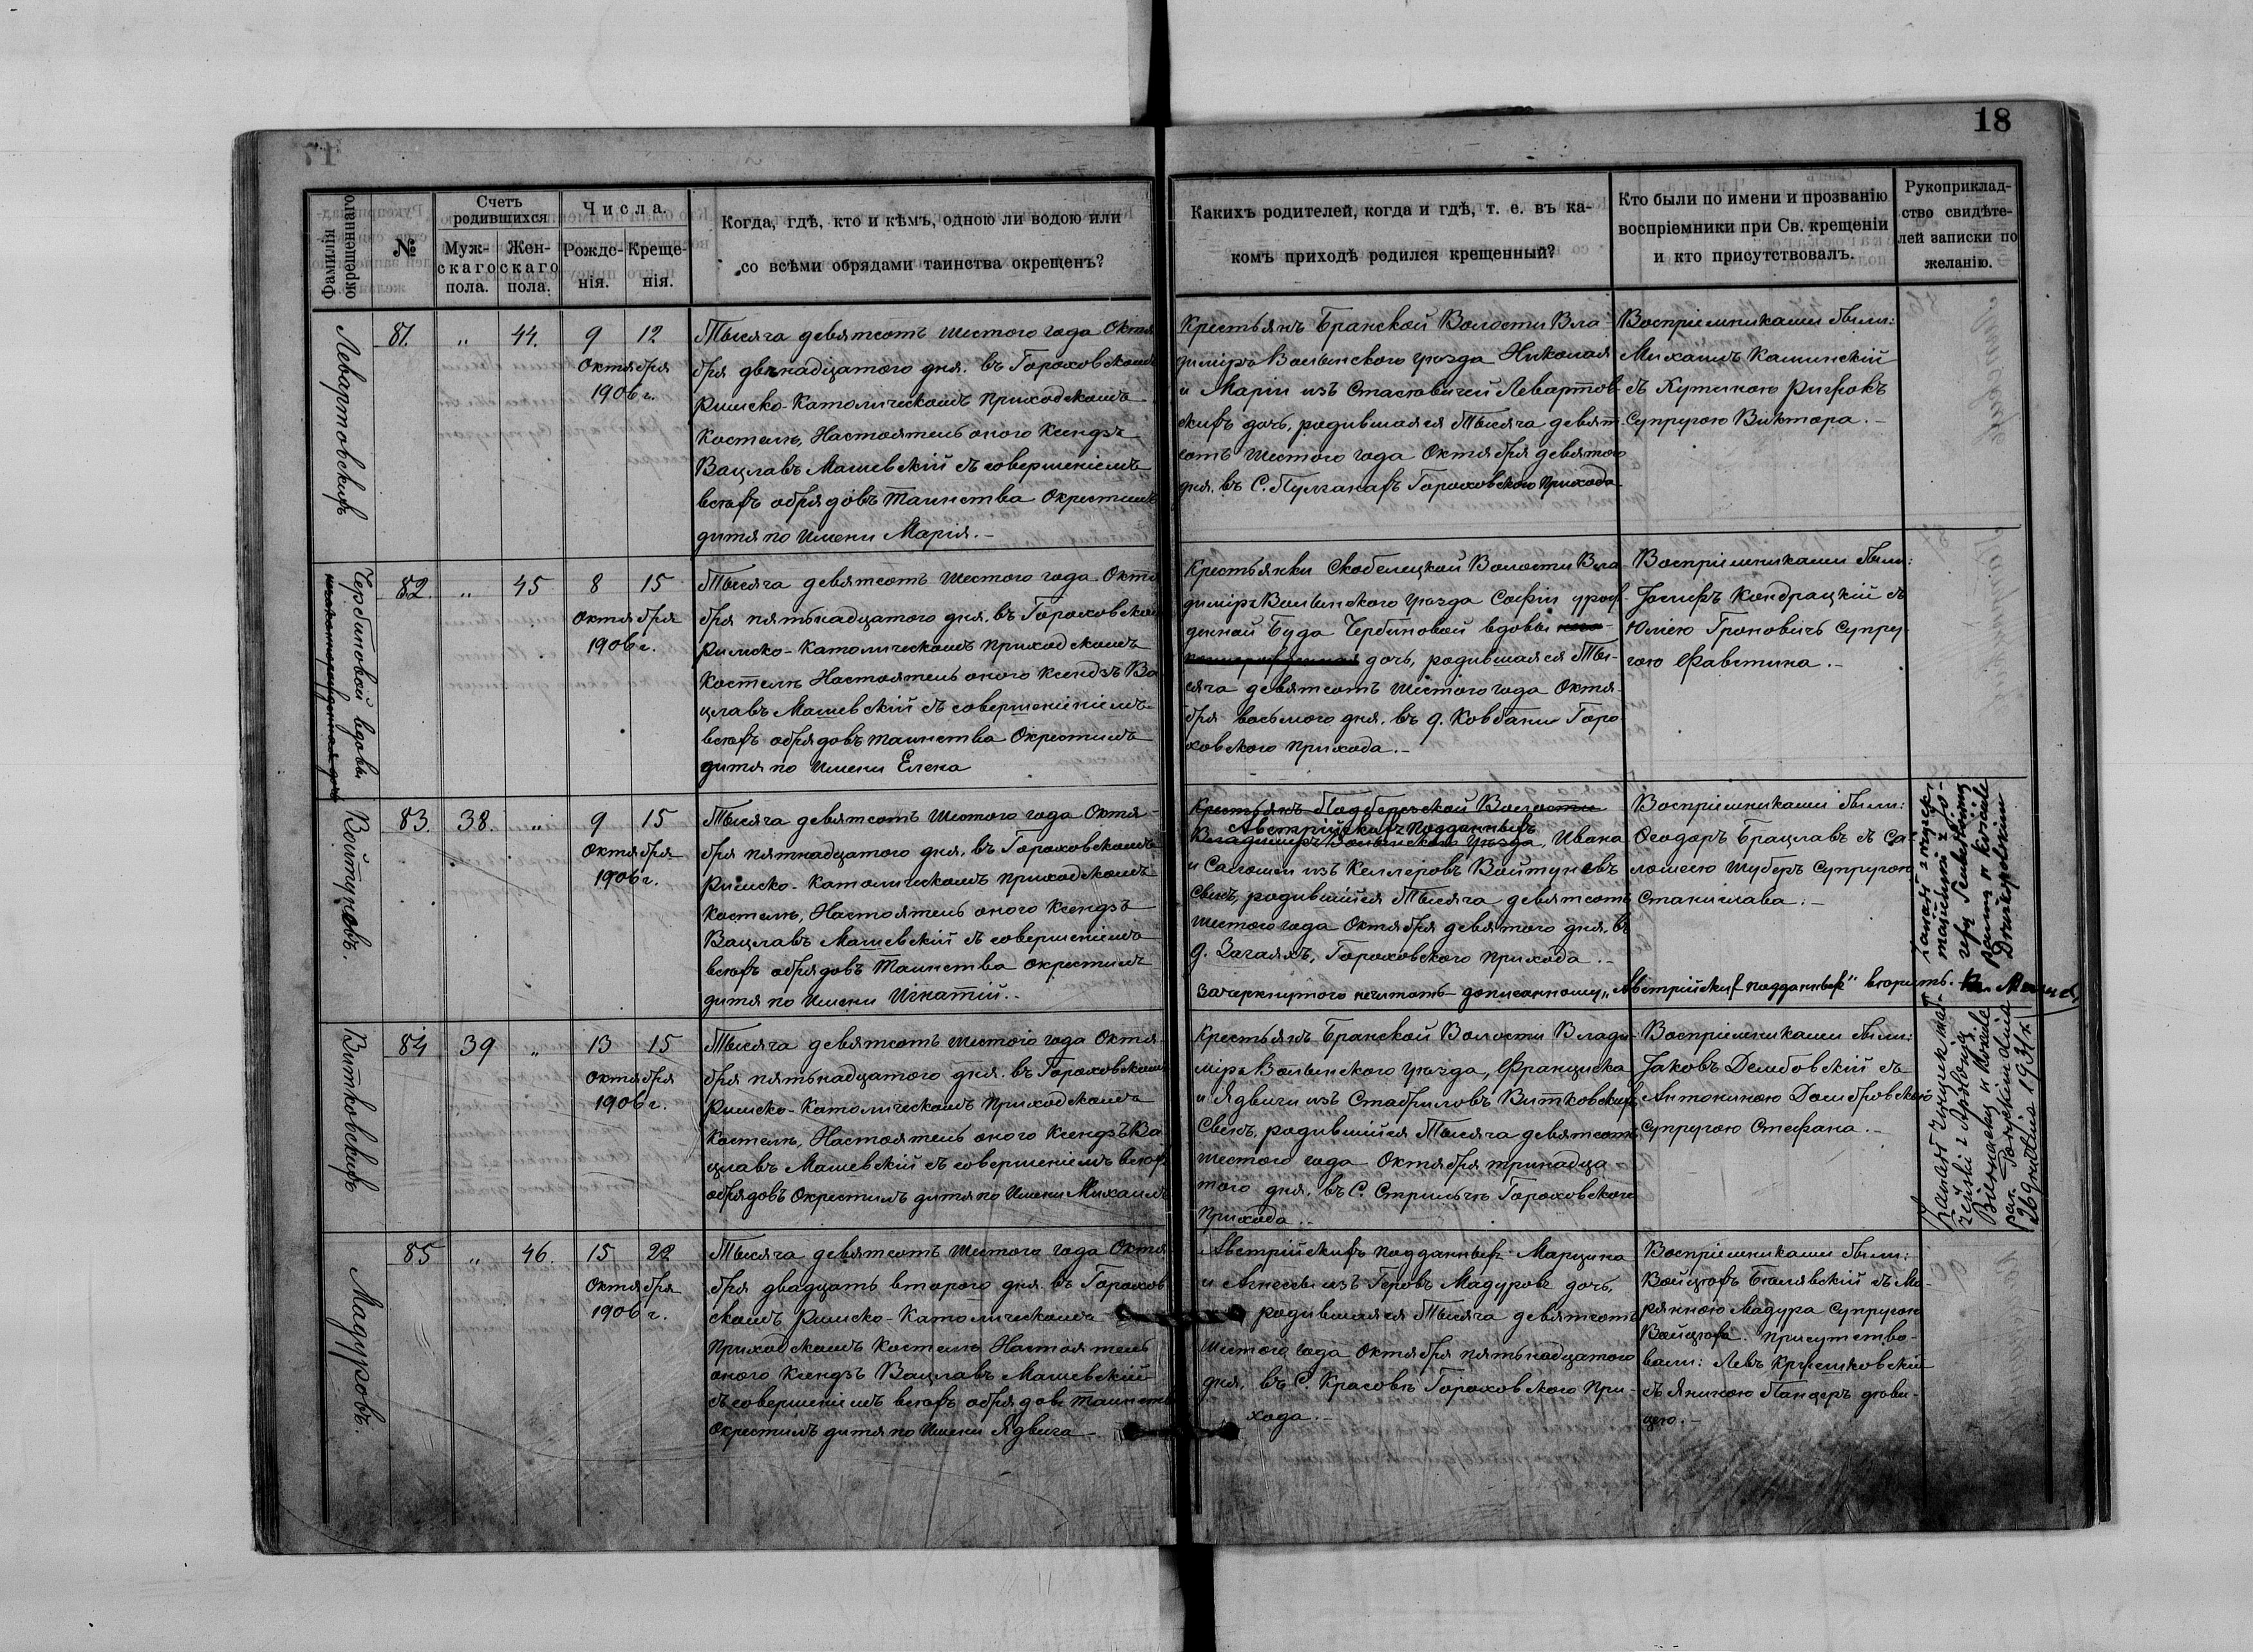 18
Фамилія окрещеннаго
№
Счетъ родившихся
Муж-
скаго
пола.
Жен-
скаго
пола.
Числа.
Рожде-
нія.
Креще-
нія.
Когда, гдѣ, кто и кѣмъ, одною ли водою или
со всѣми обрядами таинства окрещенъ?
Какихъ родителей, когда и гдѣ, т. е. въ ка-
комъ приходѣ родился крещенный?
Кто были по имени и прозванію
воспріемники при Св. крещеніи
и кто присутствовалъ.
Рукоприклад-
ство свидѣте-
лей записки по
желанію.
Левартовскихъ
81. „ 44. 9 12
Октября
1906 г.
Тысяча девятсотъ шестого года Октя
бря двѣнадцатого дня. въ Гороховскомъ
Римско-Католическомъ приходскомъ
Костелѣ, Настоятель оного Ксендзъ
Вацлавъ Машевскій съ совершеніемъ
всѣхъ обрядовъ таинства окрестилъ
дитя по имени Марія. –
Крестьянъ Бранской Волости Вла-
диміръ Волынского уѣзда Николая
и Маріи изъ Стасювичей Левартов-
скихъ дочь, родившаяся тысяча девят-
сотъ шестого года Октября девятого
дня. въ С. Пулганахъ Гороховского прихода
Воспріемниками были:
Михаилъ Калинскій
съ
Супругою Виктора. –
Чербиновой вдовы
82. „ 45 8 15
Октября
1906 г.
Тысяча девятсотъ шестого года Октя
бря пятьнадцатого дня. въ Гороховскомъ
Римско-Католическомъ приходскомъ
Костелѣ Настоятель оного Ксендзъ Ва
цлавъ Машевскій съ совершеніемъ
всѣхъ обрядовъ таинства Окрестилъ
дитя по имени Елена
Крестьянки Скобелецкой Волости Вла
диміръ Волынского уѣзда Софіи урож-
денной Буда Чербиновой вдовы
дочь, родившаяся Ты-
сяча девятсотъ шестого года Октя-
бря восьмого дня. въ д. Ковбани Горо
ховского прихода. –
Воспріемниками были:
Іосифъ Кондрацкій съ
Юліею Гроновичъ Супру-
гою Фавстина. –
Войтуновъ.
83. 38. „ 9 15
Октября
1906 г.
Тысяча девятсотъ шестого года Октя-
бря пятнадцатого дня. въ Гороховскомъ
Римско-Католическомъ приходскомъ
Костелѣ, Настоятель оного Ксендзъ
Вацлавъ Машевскій съ совершеніемъ
всѣхъ обрядовъ Таинства окрестилъ
дитя по имени Игнатій. –
Крестьянъ Подберезской Волости
Австрійскихъ подданныхъ
Владиміръ Волынского уѣзда, Ивана
и Саломеи изъ Келлеровъ Войтуновъ
Сынъ, родившійся Тысяча девятсотъ
шестого года Октября девятого дня. въ
д. Загаяхъ, Гороховского прихода. –
Зачеркнутого нечитать – дописанному „Австрійскихъ подданныхъ" вѣрить.
Воспріемниками были:
Ѳеодоръ Брацлавъ съ Са-
ломеею Шуберъ Супругою
Станислава. –
Витковскихъ
84 39 „ 13 15
Октября
1906 г.
Тысяча девятсотъ шестого года Октя-
бря пятьнадцатого дня. въ Гороховскомъ
Римско-Католическомъ приходскомъ
Костелѣ, Настоятель оного Ксендзъ Ва
цлавъ Машевскій съ совершеніемъ всѣхъ
обрядовъ Окрестилъ дитя по имени Михаилъ
Крестьянъ Бранской Волости Влади-
міръ Волынского уѣзда, Франциска
и Ядвиги изъ Стабриловъ Витковскихъ
Сынъ, родившійся Тысяча девятсотъ
шестого года Октября тринадца
того дня. въ С. Стрильчѣ Гороховского
прихода. –
Воспріемниками были:
Іаковъ Дембовскій съ
Антониною Домбровскою
Супругою Стефана. –
związek mał-
żeński z
w kościele
par.
26 1931 r.
Мадуровъ.
85 „ 46. 15 22
Октября
1906 г.
Тысяча девятсотъ шестого года Октя
бря двадцать второго дня. въ Горохов
скомъ Римско-Католическомъ
приходскомъ Костелѣ Настоятель
оного Ксендзъ Вацлавъ Машевскій
съ совершеніемъ всѣхъ обрядовъ таинства
Окрестилъ дитя по имени Ядвига
Австрійскихъ подданныхъ Марцина
и Агнессы изъ Геровъ Мадуровъ дочь,
родившаяся Тысяча девятсотъ
шестого года Октября пятьнадцатого
дня. въ С. Красовѣ Гороховского при-
хода. –
Воспріемниками были:
Войцѣхъ Белявскій съ Ма-
рянною Мадура Супругою
Войцѣха. Присутство-
вали: Левъ Кржешковскій
съ Яниною Панцеръ дѣви-
цею. –